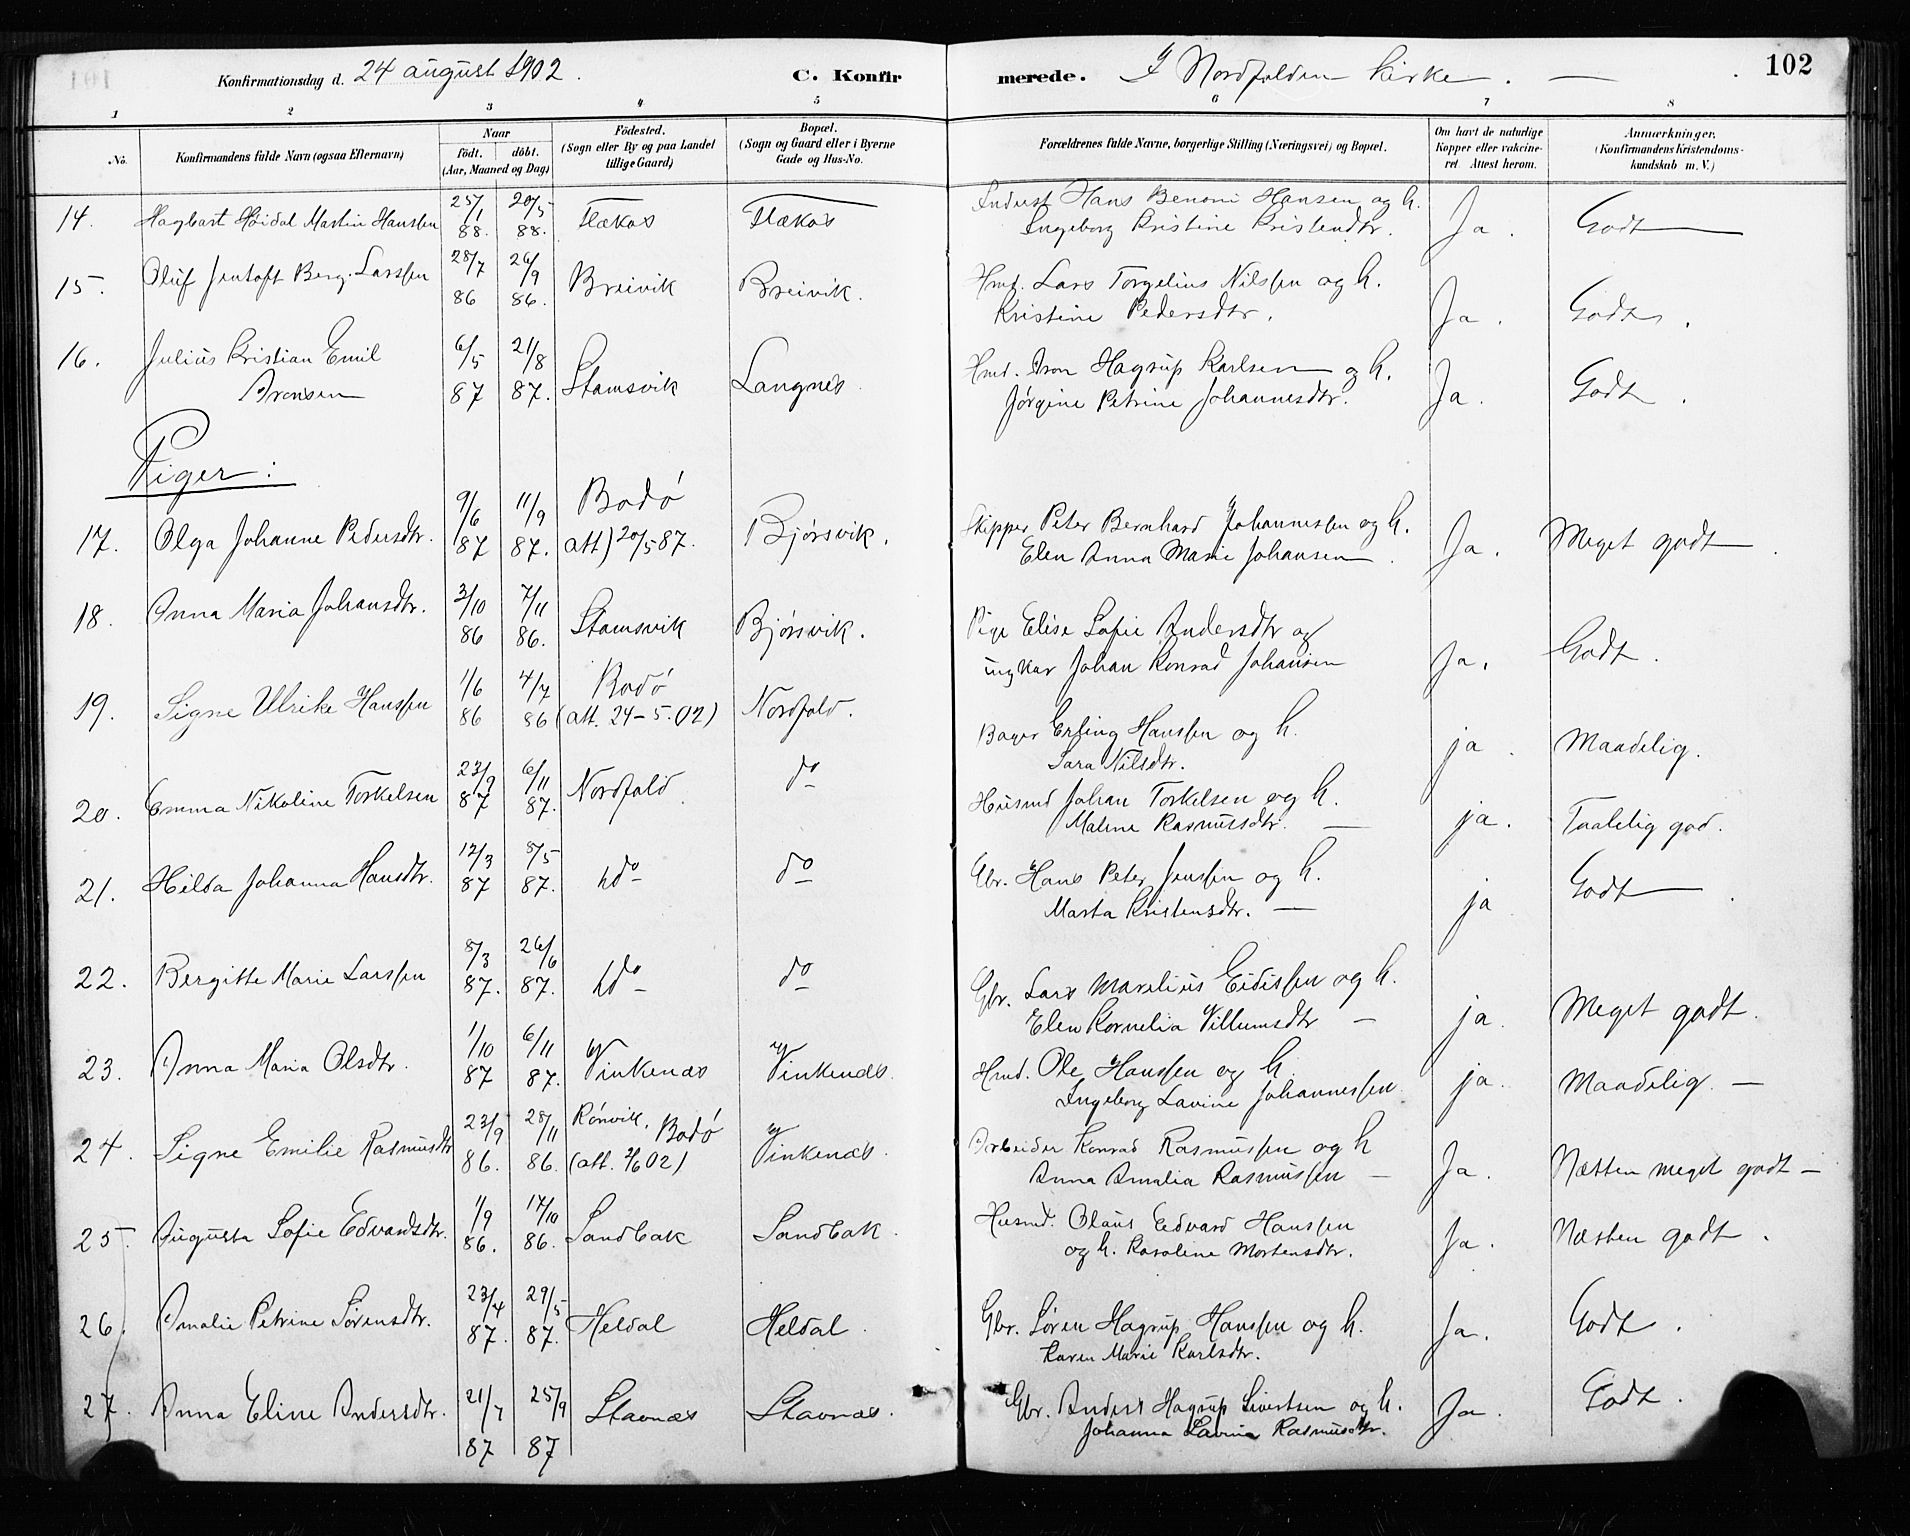 Konfirmationsdag d. 24 august 1902. C. Konfirmerede. I Nordfolden kirke. 102
1 2 3 4 5 6 7 8
No. Konfirmandens fulde Navn (ogsaa Efternavn) Naar födt. döbt. (Aar, Maaned og Dag) Födested. (Sogn eller By og paa Landet tillige Gaard) Bopæl. (Sogn og Gaard eller i Byerne Gade og Hus-No. Forældrenes fulde Navne, borgerlige Stilling (Næringsvei) og Bopæl. Om havt de naturlige Kopper eller vakcineret Attest herom. Anmærkninger. (Konfirmandens Kristendomskundskab m. V.)
14. Hagbart Høidal Martin Hanssen 25/1 88. 20/5 88. Flækos Flækos Inderst Hans Benoni Hansen og h. Ja. Godt
Ingeborg Kristine Kristendtr.
15. Oluf Jentoft Berg Larssen 28/7 86 26/9 86. Breivik Breivik. Hmd. Lars Torgelius Nilssen og h. Ja. Godt.
Kristine Pedersdtr.
16. Julius Kristian Emil 6/5 87 21/8 87. Stamsvik Langnes Hmd. Aron Hagrup Karlsen og h. Ja. Godt.
Aronsen Jørgine Petrine Johannesdtr.
Piger:
17. Olga Johanne Pedersdtr. 9/6 87 11/9 87. Bodø Bjørsvik. Skipper Peter Bernhard Johannessen og h. Ja. Meget godt.
att) 20/5 87. Elen Anna Marie Johansen
18. Anna Maria Johansdtr. 3/10 86 7/11 86. Stamsvik Bjørsvik. Pige Elise Sofie Andersdtr og Ja. Godt.
ungkar Johan Konrad Johansen
19. Signe Ulrike Hanssen 1/6 86 4/7 86 Bodø Nordfold. Bager Erling Hanssen og h. ja. Maadelig.
(att. 24-5.02) Sara Nilsdtr.
20. Emma Nikoline Torkelsen 23/9 87 6/11 87. Nordfold do Husmd Johan Torkelsen og h. ja. Taalelig god.
Maline Rasmusdtr.
21. Hilda Johanna Hansdtr. 12/3 87 8/5 87. do do Gbr. Hans Peter Jenssen og h. ja Godt
Marta Kristensdtr.
22. Bergitte Marie Larssen 8/3 87. 26/6 87. do do Gbr. Lars Marelius Eidissen og h. ja. Meget godt.
Elen Kornelia Villumsdtr
23. Anna Maria Olsdtr. 1/10 87 6/11 87. Vinkenæs Vinkenæs. Hmd. Ole Hanssen og h. ja. Maadelig.
Ingeborg Lavine Johannessen
24. Signe Emilie Rasmusdtr 23/9 86. 28/11 86. Rønvik, Bodø Vinkenæs. Arbeider Konrad Rasmussen og h Ja. Næsten meget godt
Anna Amalia Rasmussen
25. Augusta Sofie Edvardsdtr. 1/9 86. 17/10 86. Sandbak Sandbak. Husmd. Olaus Edvard Hanssen Ja. Næsten godt.
og h. Karoline Mortensdtr.
26. Amalie Petrine Sørensdtr. 23/4 87. 29/5 87. Heldal Heldal. Gbr. Søren Hagrup Hanssen og h. Ja. Godt.
Karen Marie Karlsdtr.
27. Anna Eline Andersdtr. 21/7 87 25/9 87 Stavnæs Stavnæs. Gbr. Anders Hagrup Sivertsen og h. Ja. Godt.
Johanna Lavina Rasmusdtr.